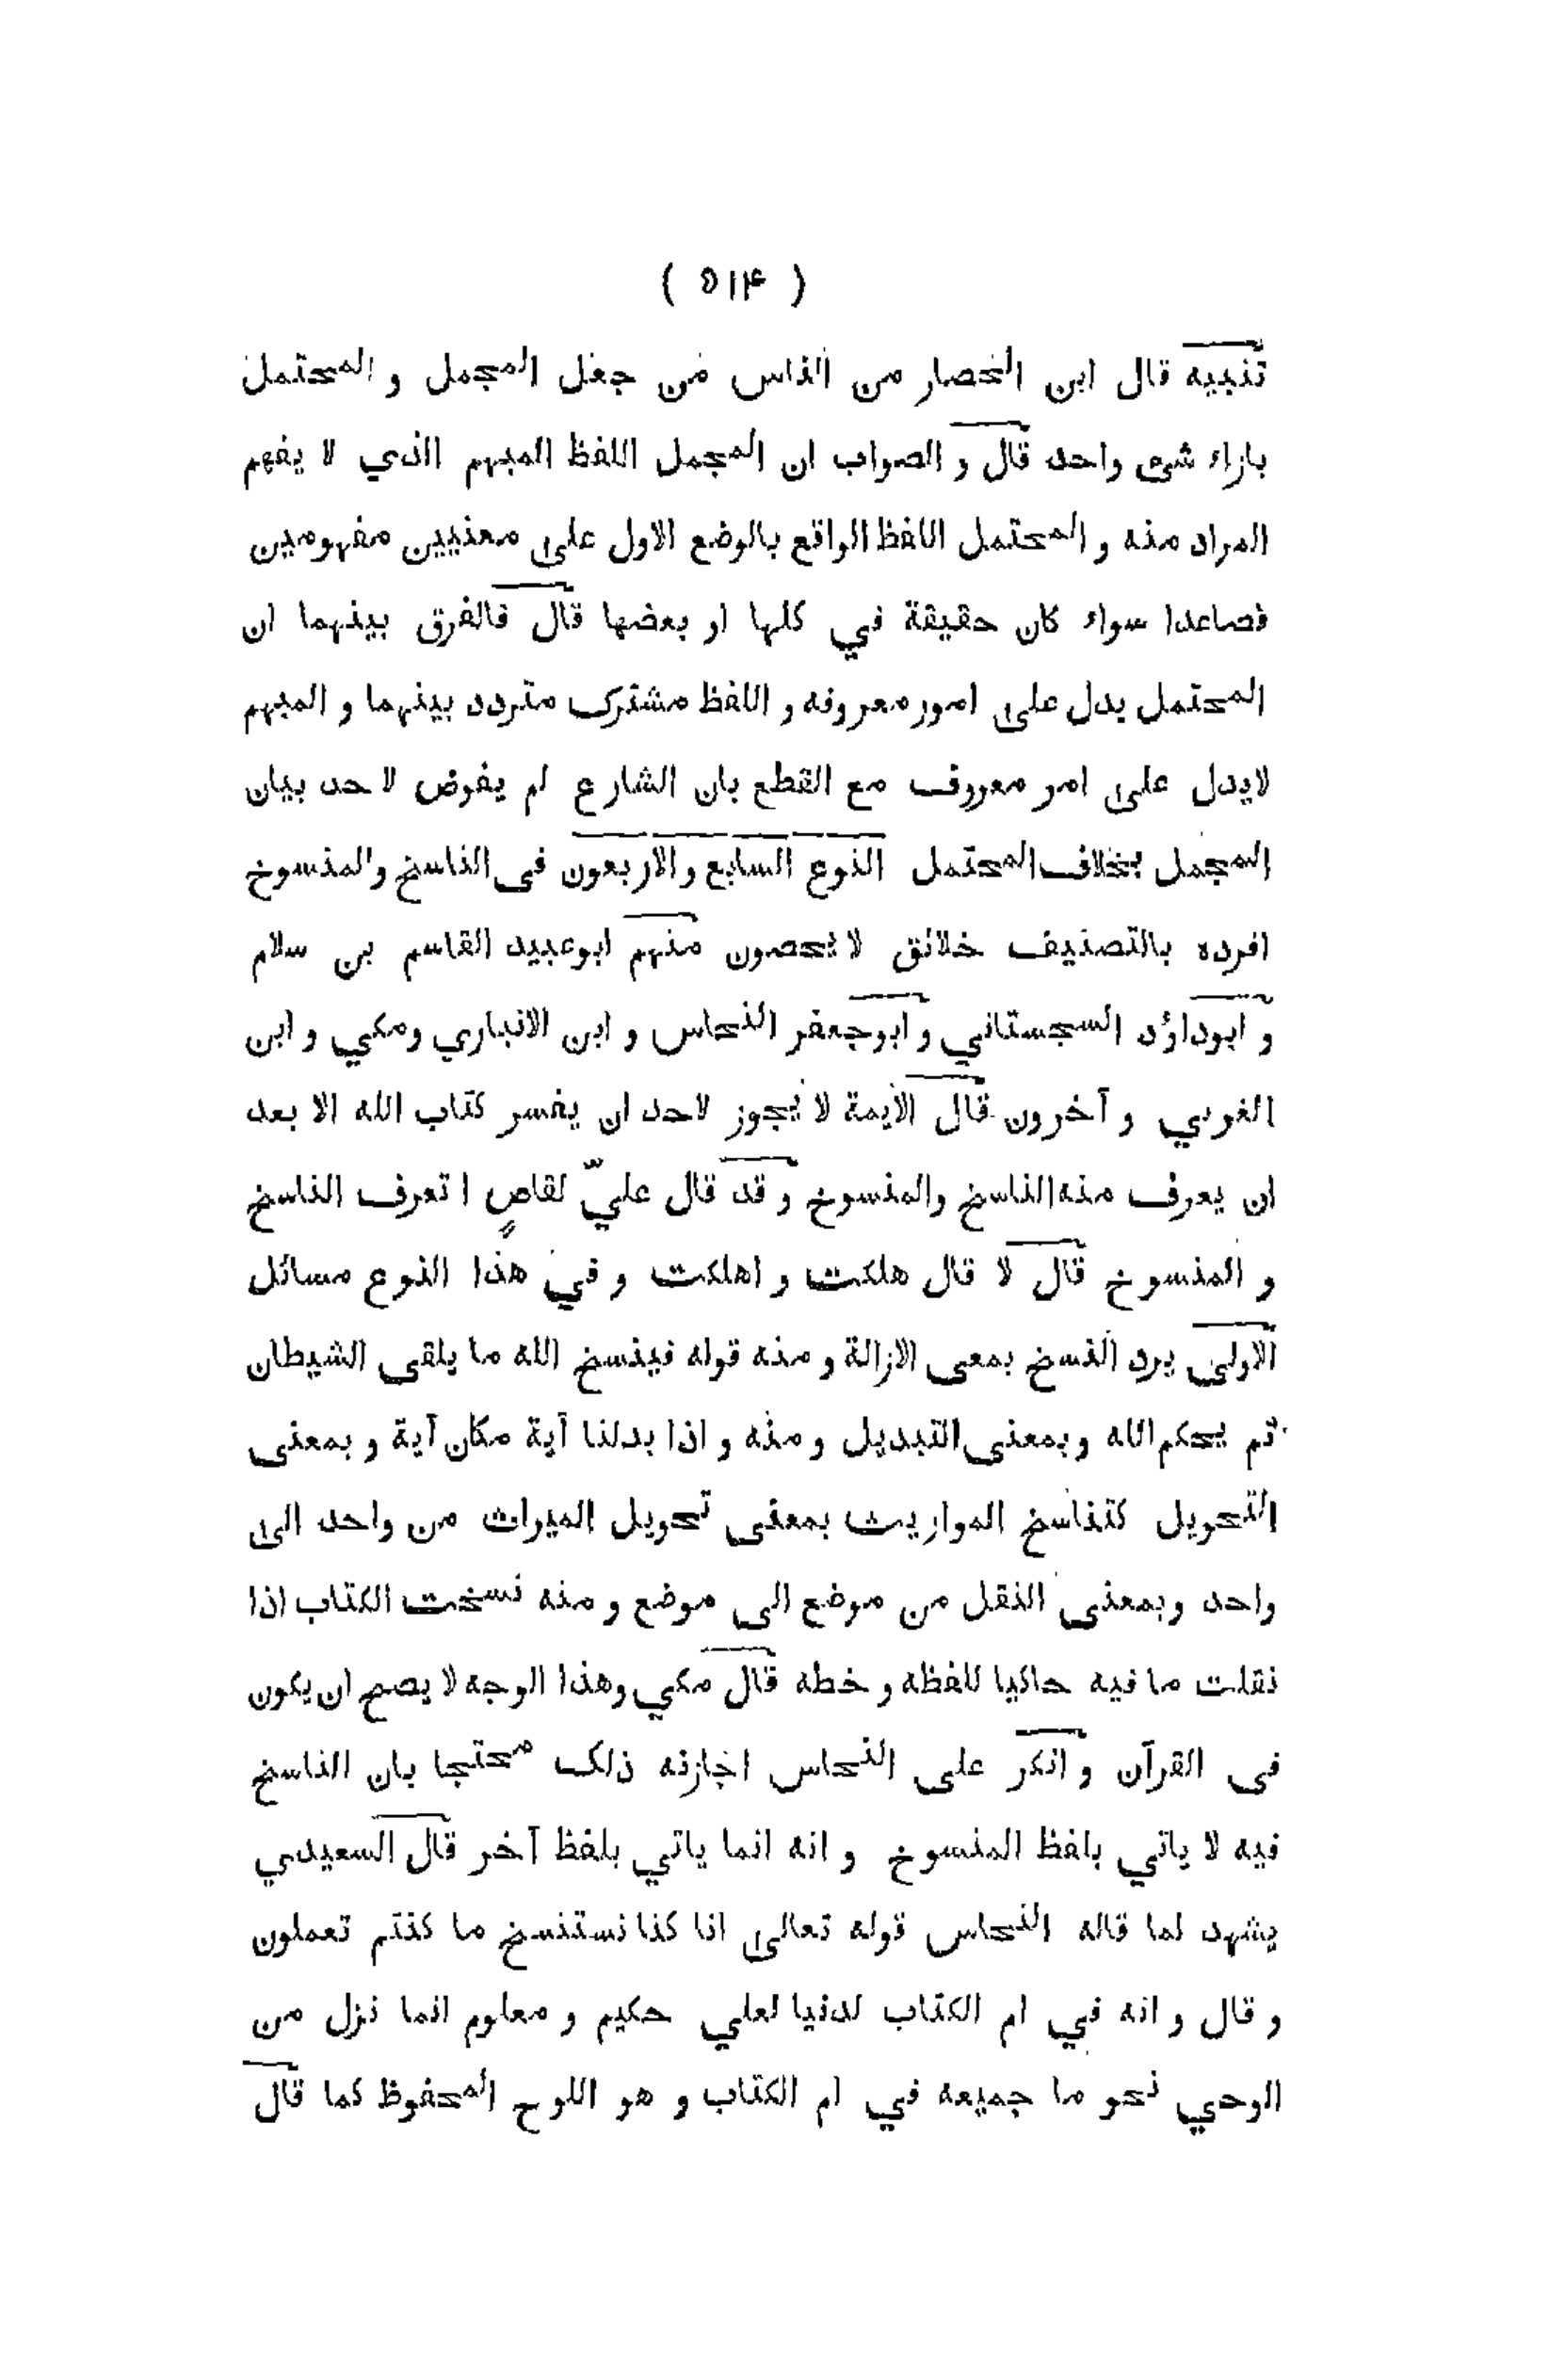 ( ٥١۴ )
تنبيه قال ابن الحصار من الناس من جعل المجمل و المحتمل
بازاء شى واحد قال و الصواب ان المجمل اللفظ المبهم الذي لا يفهم
المراد منه و المحتمل اللفظ الواقع بالوضع الاول على معنيين مفهومين
فصاعدا سواء كان حقيقة في كلها او بعضها قال فالفرق بينهما ان
المحتمل يدل على امور معروفه و اللفظ مشترك متردد بينهما و المبهم
لايدل على امر معروف مع القطع بان الشارع لم يفوض لاحد بيان
المجمل بخلاف المحتمل النوع السابع والاربعون فى الناسخ والمنسوخ
افرده بالتصنيف خلائق لا يحصون منهم ابوعبيد القاسم بن سلام
و ابوداؤد السجستاني و ابوجعفر النحاس و ابن الانباري ومكي و ابن
الغربي و آخرون قال الأيمة لا يجوز لاحد ان يفسر كتاب الله الا بعد
ان يعرف منه الناسخ والمنسوخ و قد قال عليّ لقاصٍ ا تعرف الناسخ
و المنسوخ قال لا قال هلكت و اهلكت و في هذا النوع مسائل
الاولى يرد النسخ بمعى الازالة و منه قوله فينسخ الله ما يلقى الشيطان
ثم يحكم الله وبمعنى التبديل ومنه و اذا بدلنا آية مكان آية و بمعنى
التحويل كتناسخ المواريث بمعنى تحويل الميراث من واحد الى
واحد وبمعنى النقل من موضع الى موضع و منه نسخت الكتاب اذا
نقلت ما فيه حاكيا للفظه و خطه قال مكي وهذا الوجه لا يصح ان يكون
فى القرآن و انكر على النحاس اجازته ذلك محتجا بان الناسخ
فيه لا ياتي بلفظ المنسوخ و انه انما ياتي بلفظ آخر قال السعيدي
يشهد لما قاله النحاس قوله تعالى انا كنا نستنسخ ما كنتم تعملون
و قال و انه في ام الكتاب لدنيا لعلي حكيم و معلوم انما نزل من
الوحي نحو ما جميعه في ام الكتاب و هو اللوح المحفوظ كما قال